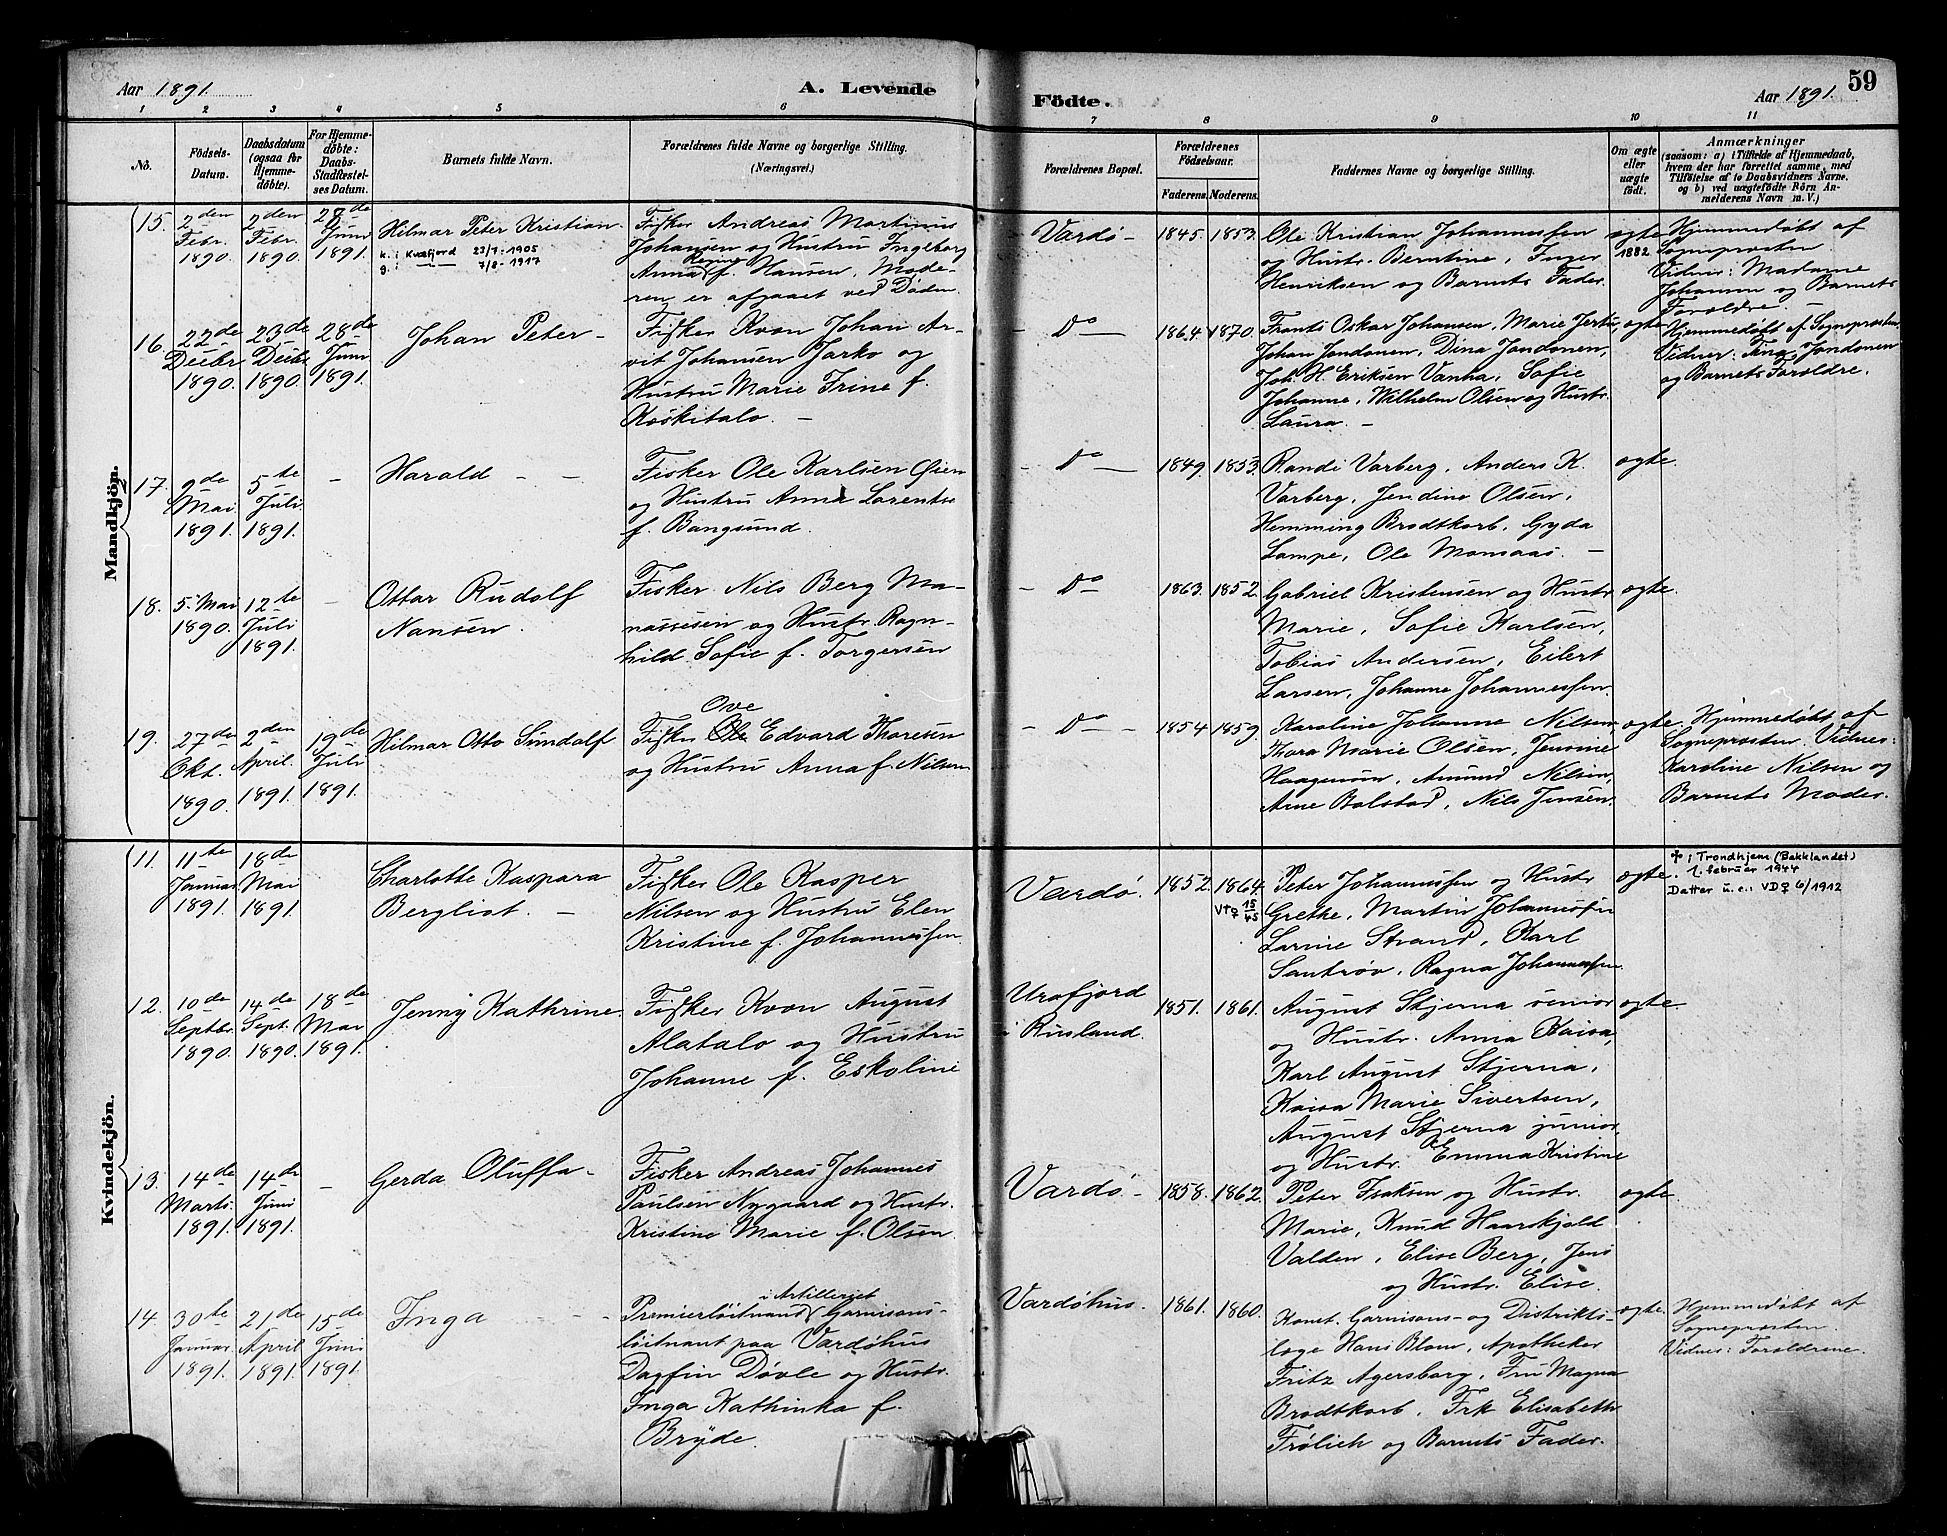 59
Aar 1891.
A. Levende
Födte.
Aar 1891.
1 2 3 4 5 6 7 8 9 10 11
No.
Födsels-
Datum.
Daabsdatum
(ogsaa for
Hjemme-
døbte).
For Hjemme-
døbte:
Daabs-
Stadfæstel-
ses Datum.
Barnets fulde Navn.
Forældrenes fulde Navne og borgerlige Stilling.
(Næringsvei.)
Forældrenes Bopæl.
Forældrenes
Födselsaar.
Faderens. Moderens.
Faddernes Navne og borgerlige Stilling.
Om ægte
eller
uægte
födt.
Anmærkninger
(saasom: a) i Tilfælde af Hjemmedaab,
hvem der har forrettet samme, med
Tilföielse af to Daabsvidners Navne.
og b) ved uægtefödte Börn An-
melderens Navn m. V.)
Mandkjön.
15.
2den
Febr.
1890.
2den
Febr.
1890.
28de
Juni
1891.
Hilmar Peter Kristian.
k. i Kvæfjord 23/7 1905
g. i —— 7/8 - 1917
Fisker Andreas Martinus
Johansen og Hustru Ingeborg
Anna Regine f. Hansen. Mode-
ren er afgaaet ved Døden.
Vardø -
1845. 1853.
Ole Kristian Johannessen
og Hustr. Berntine, Inger
Henriksen og Barnets Fader.
ægte
1882.
Hjemmedøbt af
Sogneprosten
Vidner: Madame
Johansen og Barnets
Forældre. -
16.
22de
Decbr
1890.
23de
Decbr
1890.
28de
Juni
1891.
Johan Peter -
Fisker Kvæn Johan Ar-
vit Johansen Jarko og
Hustru Marie Irine f.
Koskitalo. -
- Do -
1864. 1870.
Frants Oskar Johansen, Marie
Johan Jondonen, Dina Jondonen,
Joh. H. Eriksen Vanha, Sofie
Johanne, Wilhelm Olsen og Hustr.
Laura. -
ægte.
Hjemmedøbt af Sogneprosten
Vidner: Jondonen
og Barnets Forældre.
17.
9de
Mai
1891.
5te
Juli
1891.
-
Harald - -
Fisker Ole Karlsen Øien
og Hustru Anna Lorentse
f. Bangsund.
- Do -
1849. 1853.
Randi Varberg, Anders K.
Varberg, Jendine Olsen,
Hemming Brodtkorb, Gyda
Lampe, Ole Momsaas. -
ægte.
18.
5. Mai
1890.
12te
Juli
1891.
-
Ottar Rudolf
Nansen.
Fisker Nils Berg Ma-
nassesen og Hustr. Ragn-
hild Sofie f. Torgersen
- Do -
1863. 1852.
Gabriel Kristensen og Hustr
Marie, Sofie Karlsen,
Tobias Andersen, Eilert
Larsen, Johanne Johannessen.
ægte.
19.
27de
Okt.
1890.
2den
April.
1891.
19de
Juli
1891.
Hilmar Otto Sundolf
Ove
Fisker Ole Edvard Thoresen
og Hustru Anna f. Nilsen
- Do -
1854 1859.
Karoline Johanne Nilsen,
Thora Marie Olsen, Jensine
Haagensen, Amund Nilsen,
Arne Bolstad, Nils Jensen.
ægte.
Hjemmedøbt af
Sogneprosten. Vidnes:
Karoline Nilsen og
Barnets Moder.
Kvindekjön.
11.
11te
Januar
1891.
18de
Mai
1891.
Charlotte Kaspara
Bergliot. -
Fisker Ole Kasper
Nilsen og Hustru Elen
Kristine f. Johannessen.
Vardø.
1852. 1864.
V†♀ 15/45
Peter Johannessen og Hustr
Grethe, Martin Johannessen
Larine Strand, Karl
Santrøv, Ragna Johannessen.
ægte.
✝ i Trondhjem (Bakklandet)
1. februar 1944
Datter u.e.: VD♀ 6/1912
12.
10de
Septbr.
1890.
14de
Sept.
1890.
18de
Mai
1891.
Jenny Kathrine.
Fisker Kvæn August
Alatalo og Hustru
Johanne f. Eskoline
Urafjord
i Rusland.
1851. 1861.
August Stjerna senior
og Hustr. Anna Kaisa,
Karl August Stjerna,
Kaisa Marie Sivertsen,
August Stjerna junior,
og Hustr. Emma Kristine
ægte.
13.
14de
Marts.
1891.
14de
Juni
1891.
-
Gerda Oluffa -
Fisker Andreas Johannes
Paulsen Nygaard og Hustr.
Kristine Marie f. Olsen.
Vardø -
1858. 1862.
Peter Isaksen og Hustr.
Marie, Knud Haarskjold
Valden, Elise Berg, Jens
og Hustr. Elise.
ægte
14.
30te
Januar.
1891.
21de
April
1891.
15de
Juni
1891.
Inga - -
i Artilleriet
Premierløitnand, Garnisons-
løitnant paa Vardøhus
Dagfin Døvle og Hustr.
Inga Kathinka f.
Bryde.
Vardøhus.
1861. 1860.
Konst. Garnisons- og Distrikts-
læge Hans Blom, Apotheker
Fritz Agersborg, Fru Magna
Brodtkorb, Frk Elisabeth
Frølich og Barnets Fader.
ægte.
Hjemmedøbt af
Sogneprosten.
Vidnes: Forældrene.